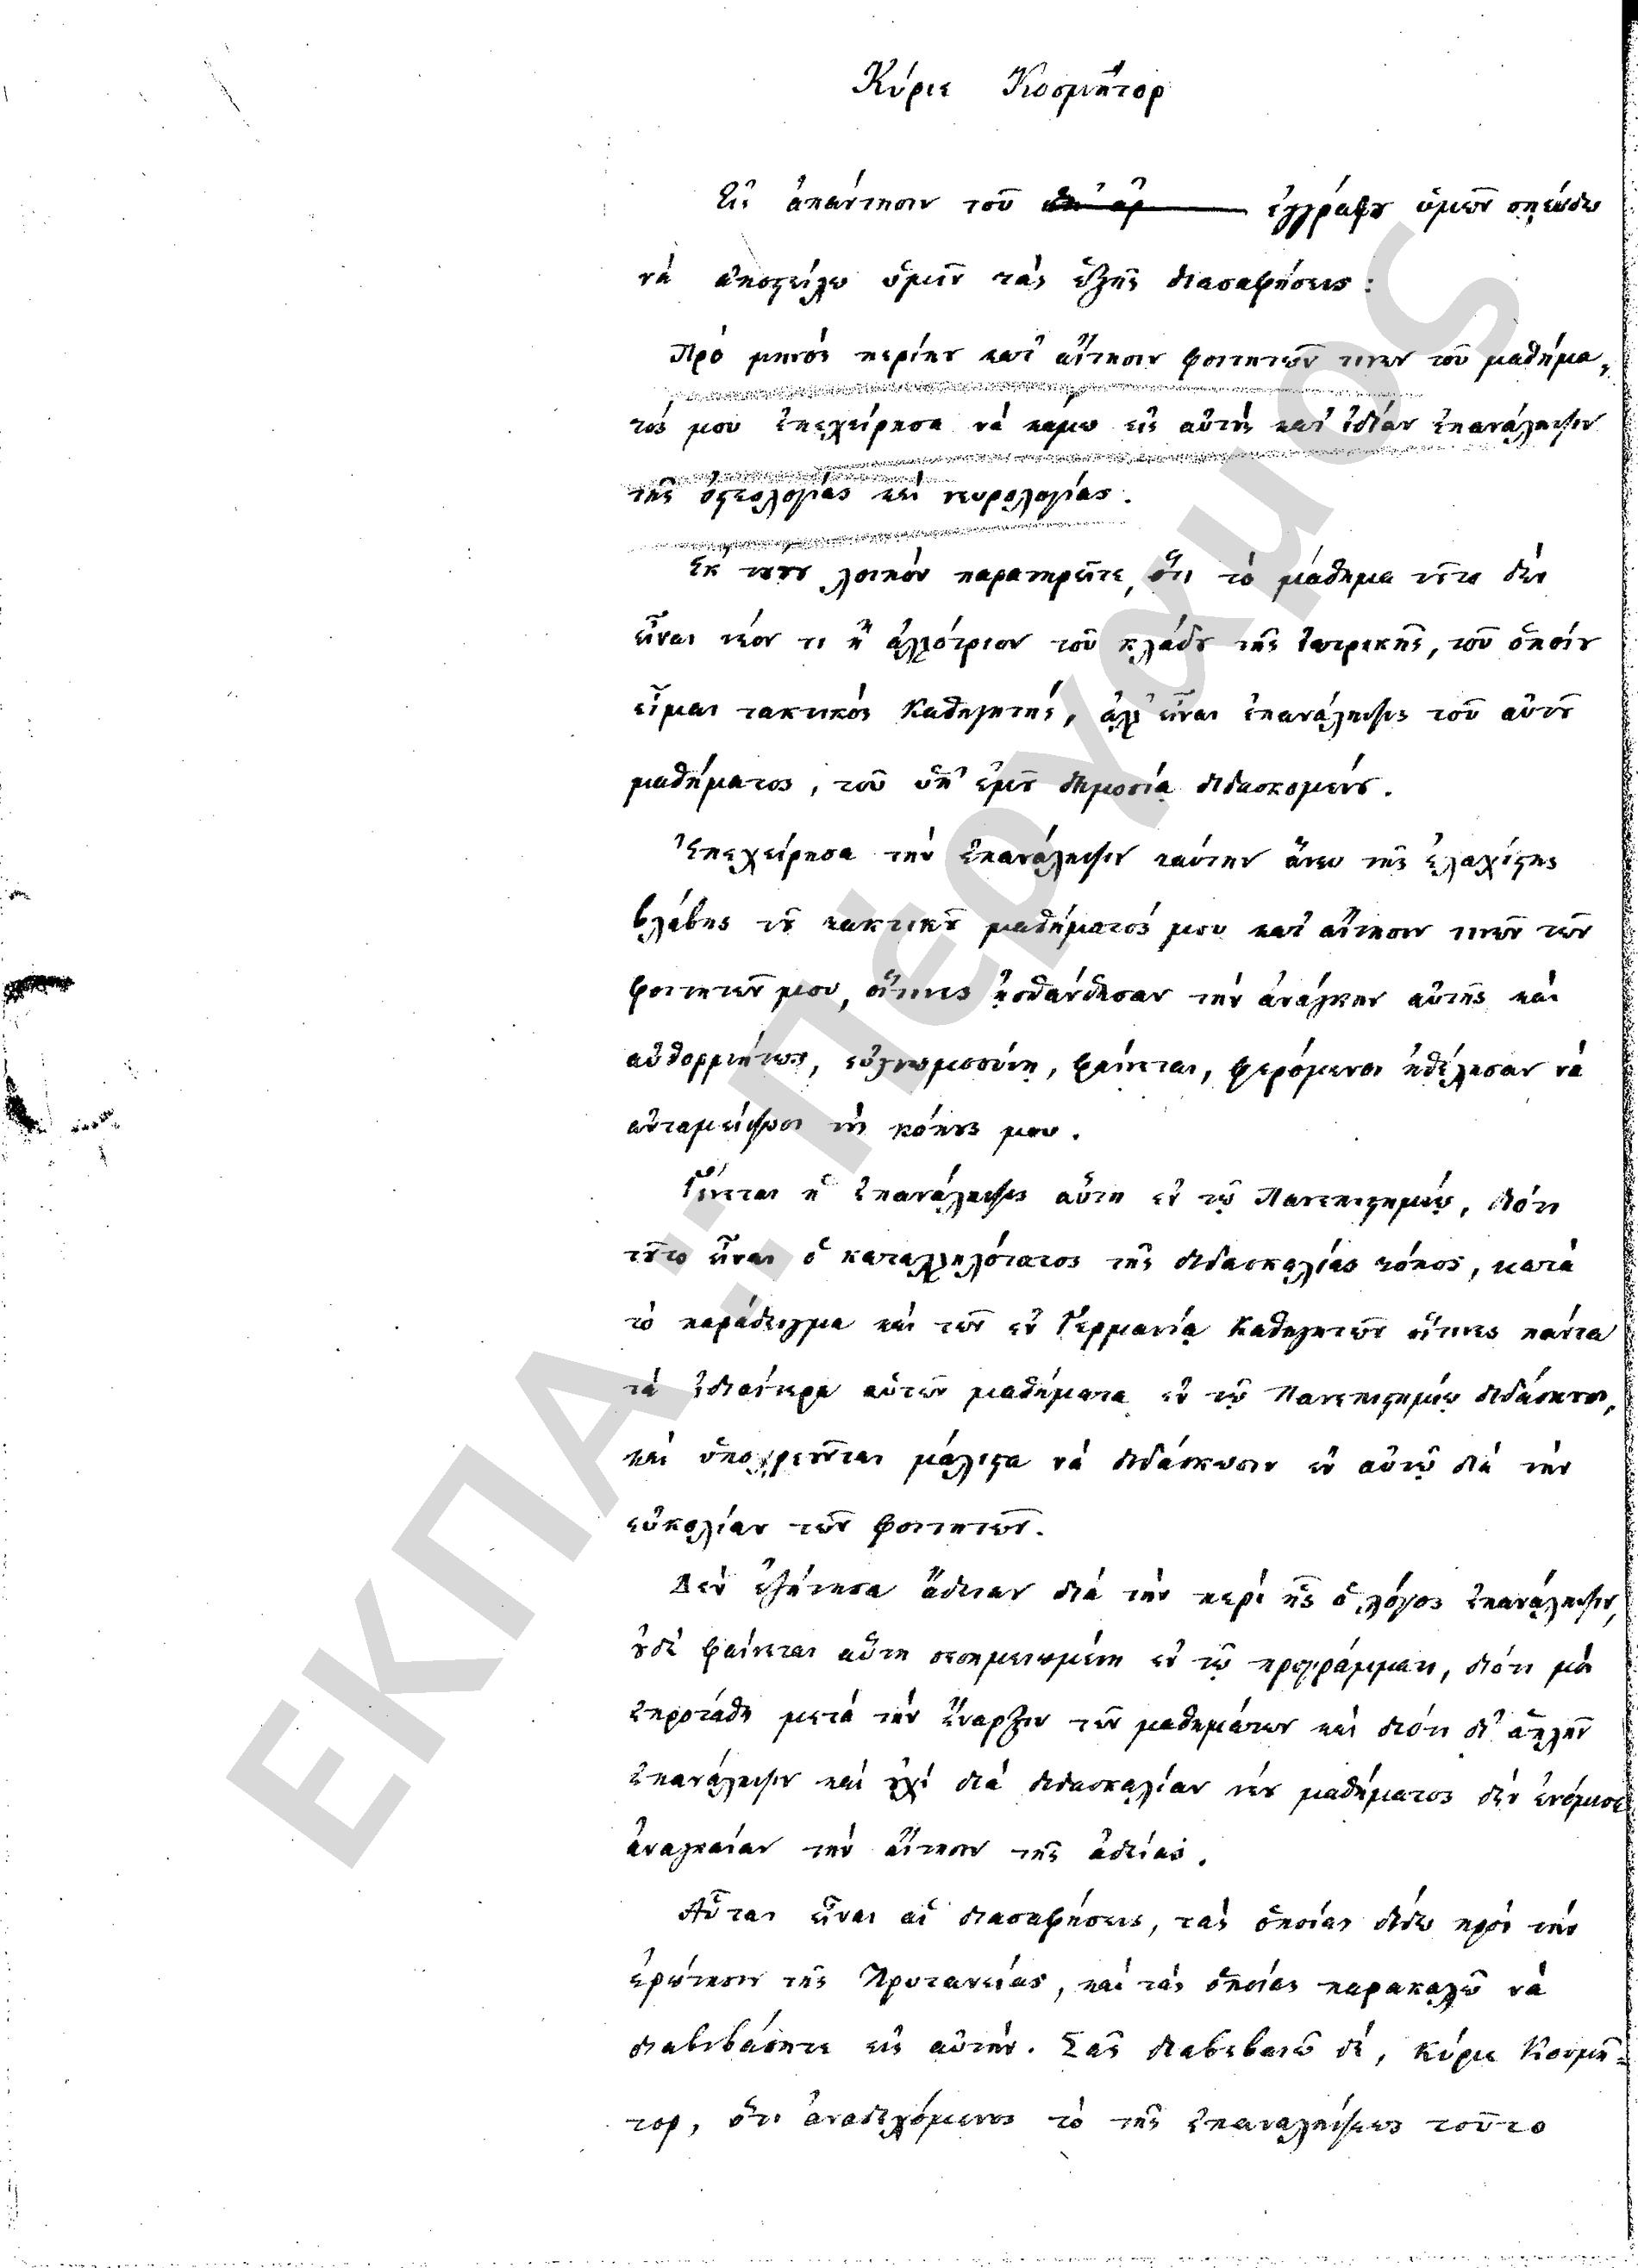 Κύριε Κοσμῆτορ
Εἰς ἀπάντησιν τοῦ ἐγγράφου ὑμῶν σπεύδω
νὰ ἀποστείλω ὑμῖν τὰς ἑξῆς διασαφήσεις:
Πρὸ μηνὸς περίπου κατ' αἴτησιν φοιτητῶν τινων τοῦ μαθήμα-
τός μου ἐπεχείρησα νὰ κάμω εἰς αὐτοὺς κατ' ἰδίαν ἐπανάληψιν
τῆς ὀστεολογίας καὶ νευρολογίας.
Ἐκ τούτου λοιπὸν παρατηρεῖτε, ὅτι τὸ μάθημα τοῦτο δὲν
εἶναι νέον τι ἢ ἀλλότριον τοῦ κλάδου τῆς Ἰατρικῆς, τοῦ ὁποίου
εἶμαι τακτικὸς Καθηγητής, ἀλλ' εἶναι ἐπανάληψις τοῦ αὐτοῦ
μαθήματος, τοῦ ὑπ' ἐμοῦ δημοσίᾳ διδασκομένου.
Ἐπεχείρησα τὴν ἐπανάληψιν ταύτην ἄνευ τῆς ἐλαχίστης
βλάβης τοῦ τακτικοῦ μαθήματός μου κατ' αἴτησιν τινῶν τῶν
φοιτητῶν μου, οἵτινες ᾐσθάνθησαν τὴν ἀνάγκην αὐτῆς καὶ
αὐθορμήτως, εὐγνωμοσύνῃ, φαίνεται, φερόμενοι ἠθέλησαν νὰ
ἀνταμείψωσι τοὺς κόπους μου.
Γίνεται ἡ ἐπανάληψις αὕτη ἐν τῷ Πανεπιστημίῳ, διότι
τοῦτο εἶναι ὁ καταλληλότατος τῆς διδασκαλίας τόπος, κατὰ
τὸ παράδειγμα καὶ τῶν ἐν Γερμανίᾳ Καθηγητῶν οἵτινες πάντα
τὰ ἰδιαίτερα αὐτῶν μαθήματα ἐν τῷ Πανεπιστημίῳ διδάσκουσι,
καὶ ὑποχρεοῦνται μάλιστα νὰ διδάσκωσιν ἐν αὐτῷ διὰ τὴν
εὐκολίαν τῶν φοιτητῶν.
Δὲν ἐζήτησα ἄδειαν διὰ τὴν περὶ ἧς ὁ λόγος ἐπανάληψιν,
οὐδὲ φαίνεται αὕτη σεσημειωμένη ἐν τῷ προγράμματι, διότι μοὶ
ἐπροτάθη μετὰ τὴν ἔναρξιν τῶν μαθημάτων καὶ διότι δι' ἁπλῆν
ἐπανάληψιν καὶ οὐχὶ διὰ διδασκαλίαν νέου μαθήματος δὲν ἐνόμισα
ἀναγκαίαν τὴν αἴτησιν τῆς ἀδείας.
Αὗται εἶναι αἱ διασαφήσεις, τὰς ὁποίας δίδω πρὸς τὴν
ἐρώτησιν τῆς Πρυτανείας, καὶ τὰς ὁποίας παρακαλῶ νὰ
διαβιβάσητε εἰς αὐτήν. Σᾶς διαβεβαιῶ δέ, κύριε Κοσμῆ-
τορ, ὅτι ἀναδεχόμενος τὸ τῆς ἐπαναλήψεως τοῦτο